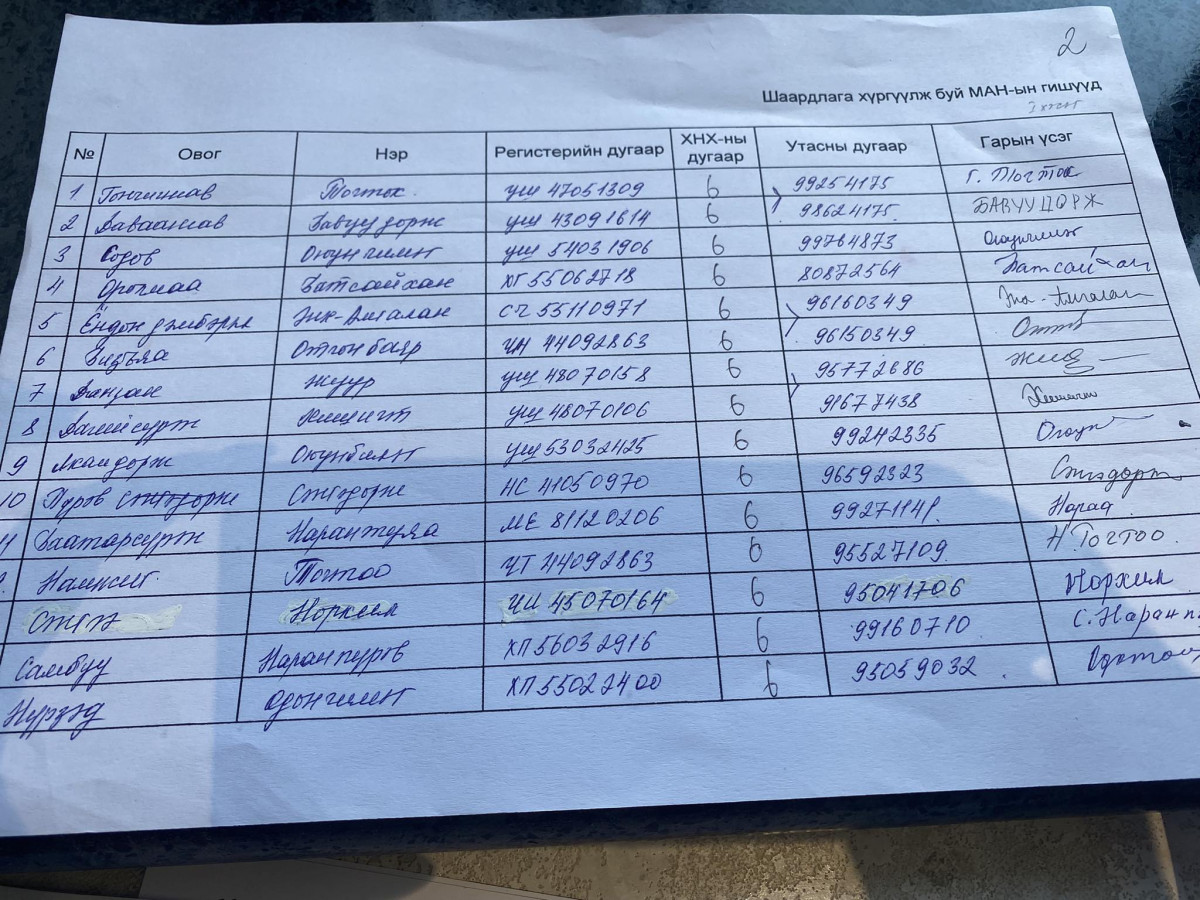 2
Шаардлага хүргүүлж буй МАН-ын гишүүд
№ Овог Нэр Регистерийн дугаар ХНХ-ны дугаар Утасны дугаар Гарын үсэг
1 Гончигжав Тогтох уш 47051309 6 99254175 Г. Тогтох
2 Даваажав Бавуудорж уш 43091614 6 98624175 БАВУУДОРЖ
3 Содов Оюунчимэг уш 54031906 6 99764873 Оюунчимэг
4 Орогмаа Батсайхан ХГ 55062718 6 80872564 Батсайхан
5 Ёндонжамбаралл Энх-Амгалан СЧ 55110971 6 96160349 Энх-Амгалан
6 Бизъяа Отгонбаяр ЦН 44092863 6 96150349
7 Данзан Жүүр уш 48070158 6 95772686
8 Дагийсүрэн Хишигт уш 48070106 6 91677438
9 Лхамдорж Оюунбилэг уш 53032425 6 99242335 Оюун
10 Пүрэв Сэнгэдорж НС 41050970 6 96592323 Сэнгэдорж
11 Баатарсүрэн Нарантуяа МЕ 81120206 6 99271141 Нараа
Намжил Тогтоо ЦТ 44092863 6 95527109 Н.Тогтоо
Сэнгээ Норжил ЦИ 45070164 6 95041706 Норжил
Самбуу Наранпүрэв ХП 56032916 6 99160710 С.Наранп
Нүрзэд Одончимэг ХП 55022400 6 95059032